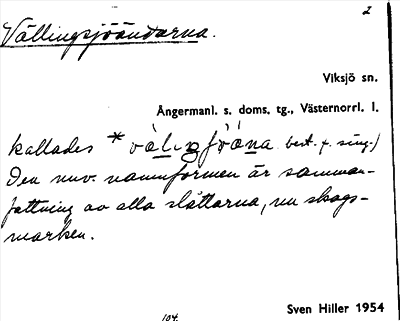 2
Vällingsjöändarna.
Viksjö sn.
Ångermanl. s. doms. tg., Västernorrl. l.
kallades best. f. sing.)
Den nuv. namnformen är samman-
fattning av alla slåttarna, nu skogs-
marken.
Sven Hiller 1954
104